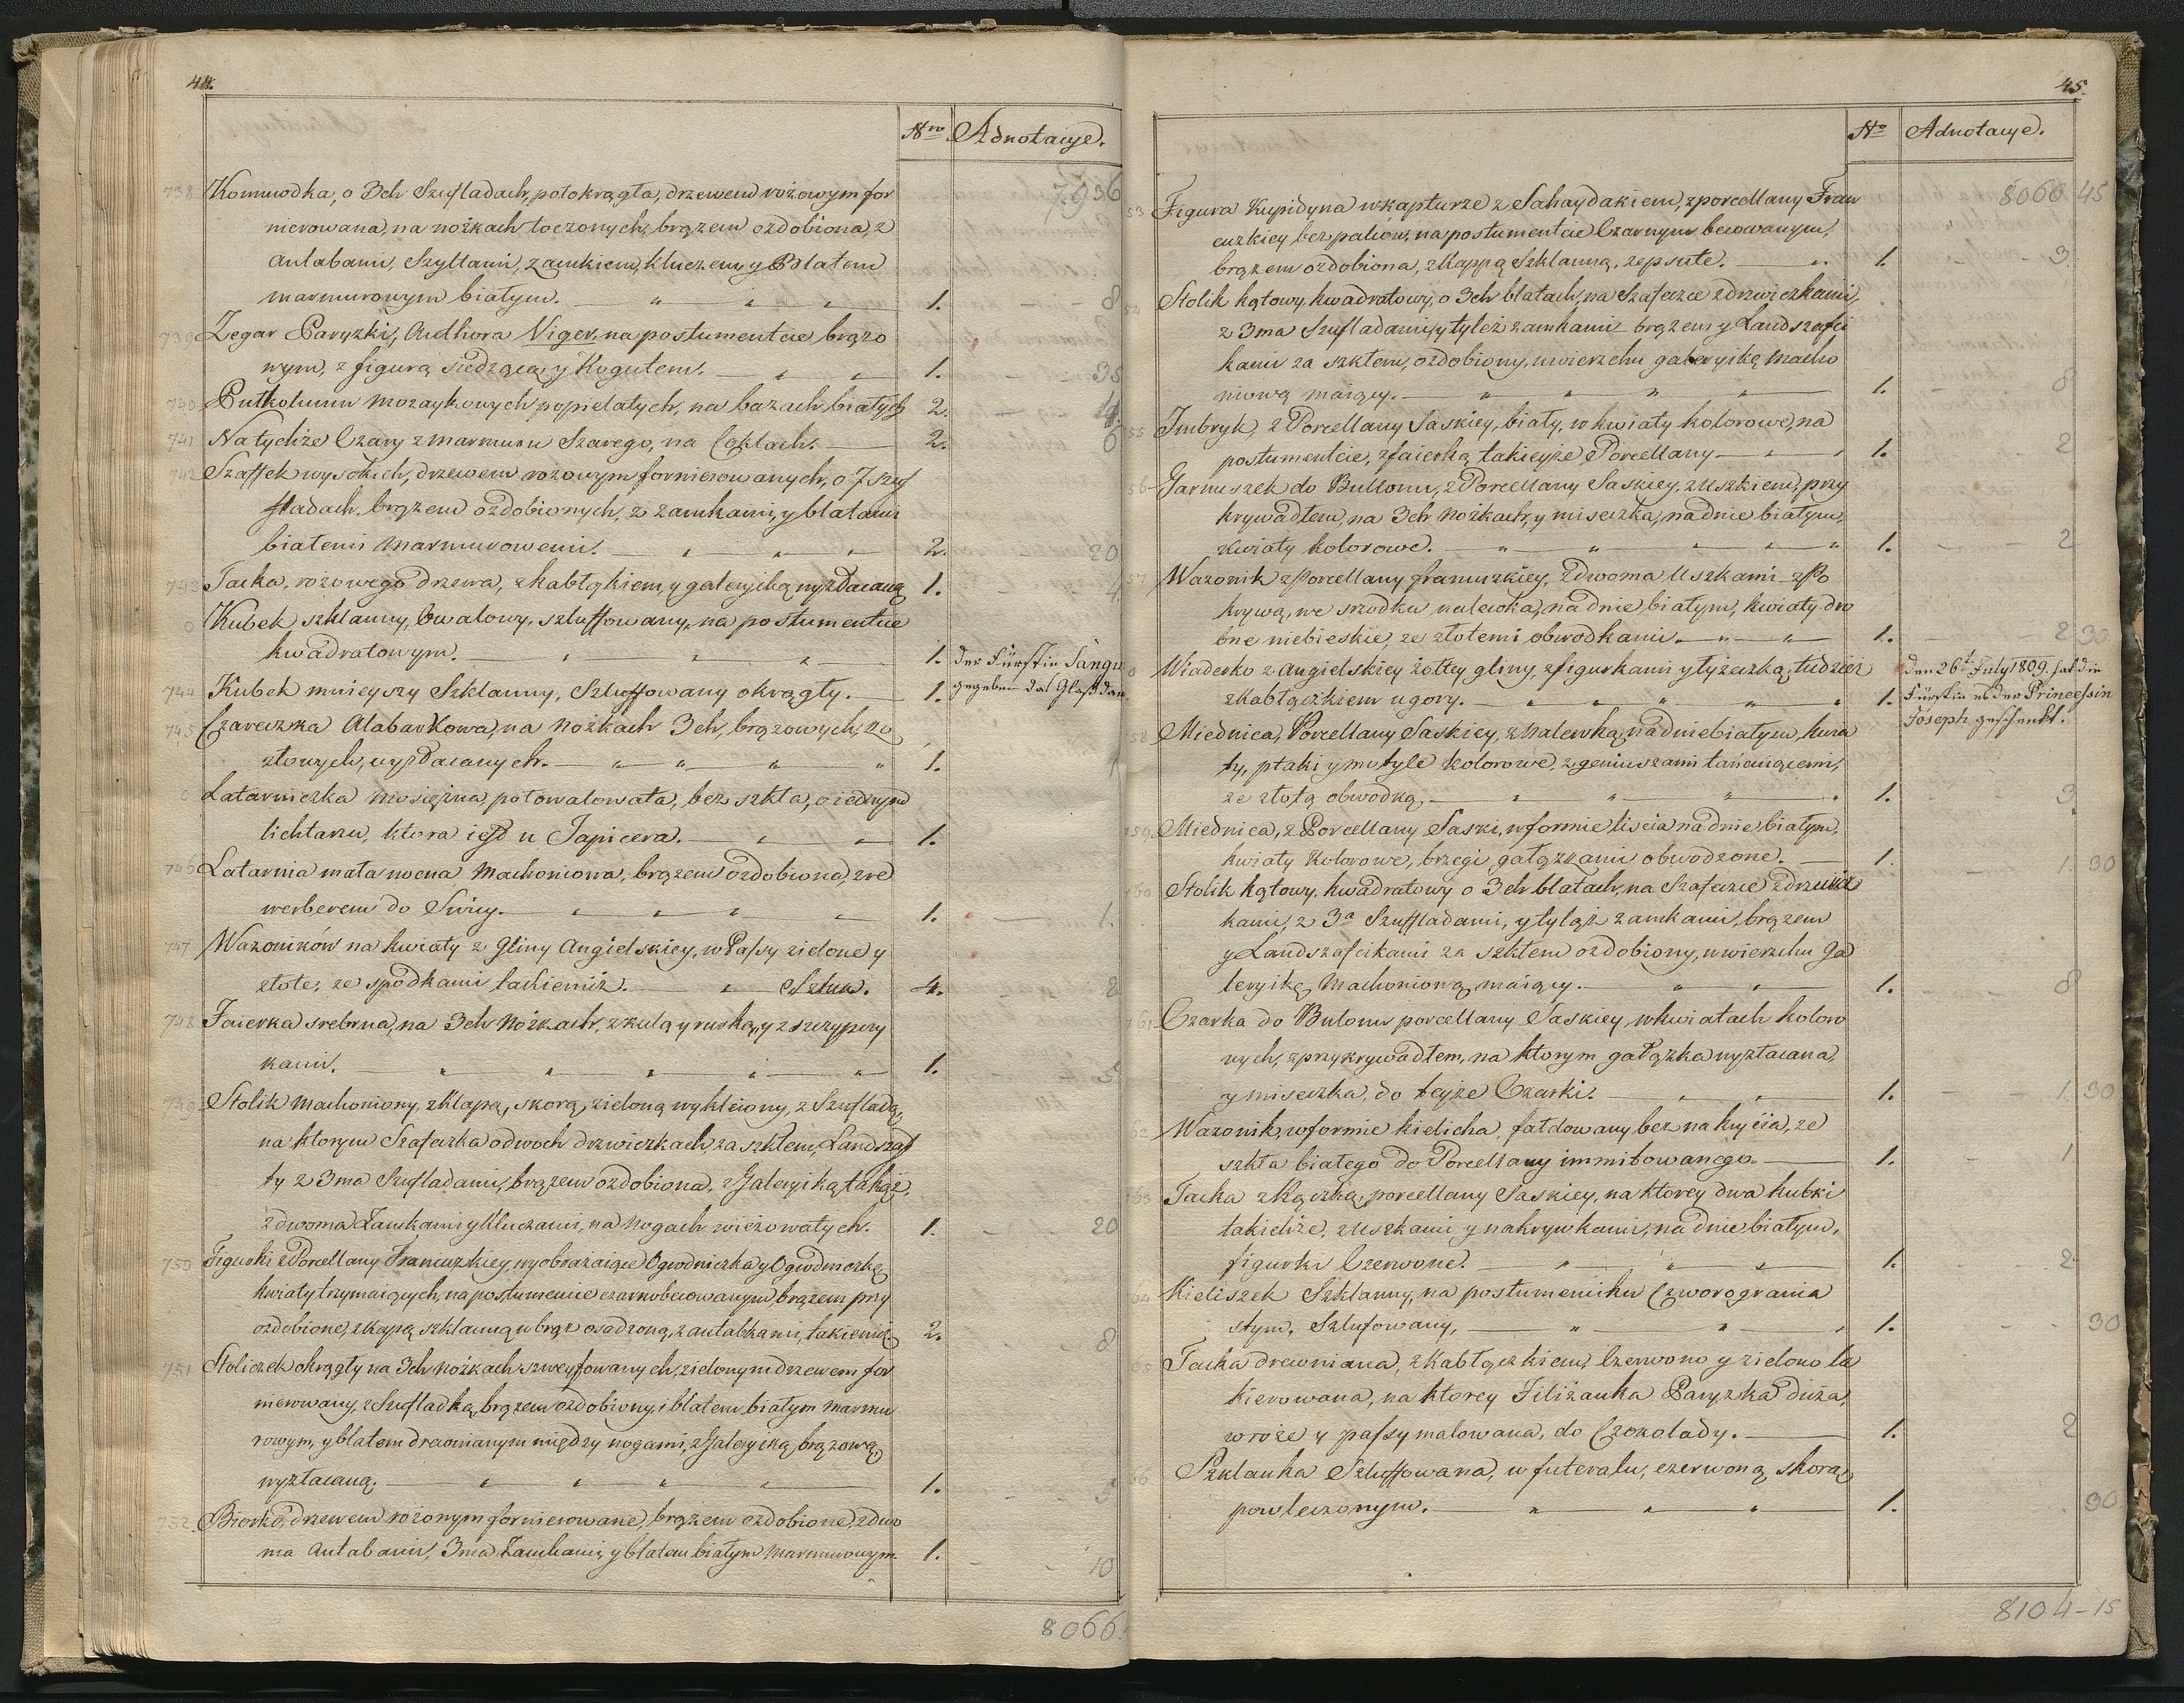 44.
Nro Adnotacye.
7936
738 Kommodka, o 3ch Szufladach, połokrągła, drzewem rożowym for
nierowana, na nożkach toczonych, brązem ozdobiona, z
antabami, Szyltami, zamkiem, kluczem, y Blatem
marmurowym białym. 1. 8
739 Zegar Paryzki, Authora Niger, na postumencie brązo
wym, z figurą siedzącą y Kogutem. 1. 35
740 Putkolumn mozaykowych popielatych, na bazach białych 2. 4
741 Na tychże Czary z marmuru Szarego, na Cęklach. 2. 6
742 Szaffek wysokich, drzewem rożowym fornierowanych, o 7 szuf
fladach, brązem ozdobionych, z zamkami, y blatami
białemi marmurowemi. 2. 20
743 Tacka, rożowego drzewa, z kabłąkiem, y galeryjką wyzłacaną 1. 4
0 Kubek szklanny, Owalowy, szluffowany, na postumencie
kwadratowym. 1. der Fürstin Sangu
744 Kubek mnieyszy Szklanny, Szluffowany okrągły. 1. gegeben das Glaß dan
745 Czareczka Alabastrowa, na nożkach 3ch, brązowych, zło
złowych, wyzłacanych. 1. 1
0 Latarniczka mosiężna, połowalowata, bez szkła, o iednym
lichtarzu, ktora iest u Tapicera. 1.
746 Latarnia mała nocna Machoniowa, brązem ozdobiona, z re
werberem do Swiicy. 1. 1.
747 Wazoników na kwiaty z Gliny Angielskiey, w Passy zielone y
złote, ze spodkami takiemiż. Sztuk. 4. 2
748 Faierka srebrna, na 3ch Nożkach, z kulą y ruską, y z szczypczy
kami. 1. 5
749 Stolik machoniowy, z klapą, skorą, zieloną wyklejony, z Szufladą,
na ktorym Szafeczka o dwoch drzwiczkach, za szkłem, Landszaf
ty z 3ma Szufladami, brązem ozdobiona, z Galeryiką takąż,
z dwoma Zamkami y Kluczami, na nogach wieżowatych. 1. 20
750 Figurki z Porcellany Francuzkiey, wyobrażaiące Ogrodniczka y Ogrodniczkę,
kwiaty trzymaiących, na postumencie czarno becowanym brązem przy
ozdobione, z kapą szklanną w brąz osadzoną, z antabkami, takiemiż 2. 8
751 Stoliczek okrągły na 3ch Nożkach szweyfowanych, zielonym drzewem for
nierowany, z Szufladką, brązem ozdobiony, i blatem białym marmu
rowym, y blatem drewnianym między nogami, z Galeryiką brązową
wyzłacaną. 1. 5
752 Biorko, drzewem rożonym fornierowane, brązem ozdobione, z dwo
ma Antabami, 3ma Zamkami, y blatem białym Marmurowym. 1. 10
8066.
45.
No Adnotacye.
8066 45
53 Figura Kupidyna w kapturze z Sahaydakiem, z porcellany Fran
cuzkiey, bez palców, na postumencie Czarnym becowanym,
brązem ozdobiona, z Kappą Szklanną, zepsute. 1. 3.
54 Stolik kątowy, kwadratowy, o 3ch blatach, na Szafeczce z drzwiczkami,
z 3ma Szufladami, y tyleż zamkami brązem y Landszafci
kami za szkłem, ozdobiony, u wierzchu galeryikę macho
niową maiący. 1. 8
55 Imbryk, z Porcellany Saskiey, biały, w kwiaty kolorowe, na
postumencie, z faierką takieyże Porcellany 1. 2
56 Garnuszek do Bullonu, z Porcellany Saskiey, z Uszkiem, przy
krywadłem, na 3ch Nożkach, y miseczką, na dnie białym,
kwiaty kolorowe. 1. 2
57 Wazonik z Porcellany francuzkiey, z dwoma Uszkami z Po
krywą, we srzodku nalewka, na dnie białym, kwiaty dro
bne niebieskie, ze złotemi obwodkami. 1. 2 30
0 Wiaderko z Angielskiey żołtey gliny, z figurkami y łyżeczką, tudzież
z kabłączkiem u gory. 1.
Den 26t July 1809. hat die
Fürstin es der Princessin
Joseph geschenkt.
58 Miednica, Porcellany Saskiey, z nalewką, na dnie białym, kwia
ty, ptaki y motyle kolorowe, z geniuszami tańcuiącemi,
ze złotą obwodką. 1. 3.
759 Miednica, z Porcellany Saski, w formie liscia na dnie białym,
kwiaty Kolorowe, brzegi gałązkami obwodzone. 1. 1 30
760 Stolik kątowy, kwadratowy o 3ch blatach, na Szafeczce z drzwicz
kami, z 3a Szuffladami, y tyląż zamkami, brązem
y Landszafcikami za szkłem ozdobiony, u wierzchu Ga
leryikę, Machoniową maiący. 1. 8
761 Czarka do Bulonu porcellany Saskiey, w kwiatach koloro
wych, z przykrywadłem, na ktorym gałązka wyzłacana,
y miseczka, do teyże Czarki. 1. 1. 30
62 Wazonik, w formie kielicha, fałdowany bez nakrycia, ze
szkła białego do Porcellany immitowanego. 1. 1
763 Tacka z Rączką, porcellany Saskiey, na ktorey dwa kubki
takieliże, z uszkami y nakrywkami, na dnie białym,
figurki Czerwone. 1. 2
64 Kieliszek Szklanny, na postumenciku Czworograna
stym, Szlufowany, 1. 30
65 Tacka drewniana, z Kabłączkiem, Czerwono y zielono la
kierowana, na ktorey Filiżanka Paryzka duża,
w roże y passy malowana, do Czokolady. 1. 2
66 Szklanka Szluffowana, w futeralu, czerwoną skorą
powleczonym. 1. 30
8104-15